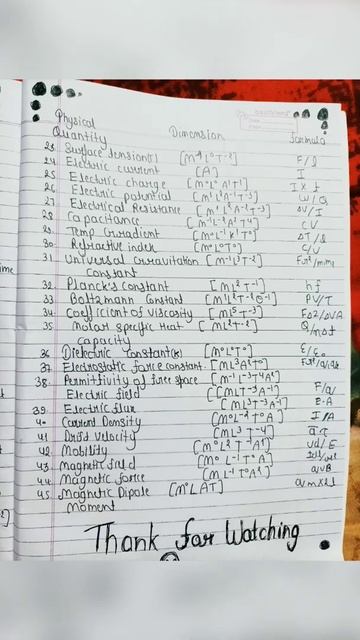 Physical
Quantity Dimension formula
23. Surface tension(T) [M¹L⁰T⁻²] F/l
24. Electric current [A] I
25. Electric charge [M⁰L⁰A¹T¹] I×t
26. Electric potential [M¹L²A⁻¹T⁻³] W/Q
27. Electrical Resistance [M¹L²A⁻²T⁻³] ΔV/I
28. Capacitance [M⁻¹L⁻²A²T⁴]
29. Temp Gradient [M⁰L⁻¹K¹T⁰] ΔT/l
30. Refractive index [M⁰L⁰T⁰] C/V
31. Universal Gravitation [M⁻¹L³T⁻²]
Constant
32. Planck's Constant [ML²T⁻¹] hf
33. Boltzmann Constant [M¹L²T⁻²θ⁻¹] PV/T
34. Coefficient of Viscosity [ML⁵T⁻³] FΔZ/ΔVA
35. Molar Specific Heat ML²T⁻²] Q/nΔt
capacity
36. Dielectric Constant(k) [M⁰L⁰T⁰] ε/ε₀
37. Electrostatic force constant. [ML³A²T⁰]
38. Permittivity of free space [M⁻¹L⁻³T⁴A²]
Electric field [CMLT⁻³A⁻¹] F/q
39. Electric flux [ML³T⁻³A⁻¹] E·A
40. Current Density [M⁰L⁻²T⁰A I/A
41. Drift Velocity [ML³T⁻⁴]
42. Mobility [M⁰L²T⁻¹A¹] vd/E
43. Magnetic field [M⁰L⁻¹T⁰A]
44. Magnetic force [ML⁻¹T⁰A²] qvB
45. Magnetic Dipole [M⁰LAT]
Moment
Thank for Watching